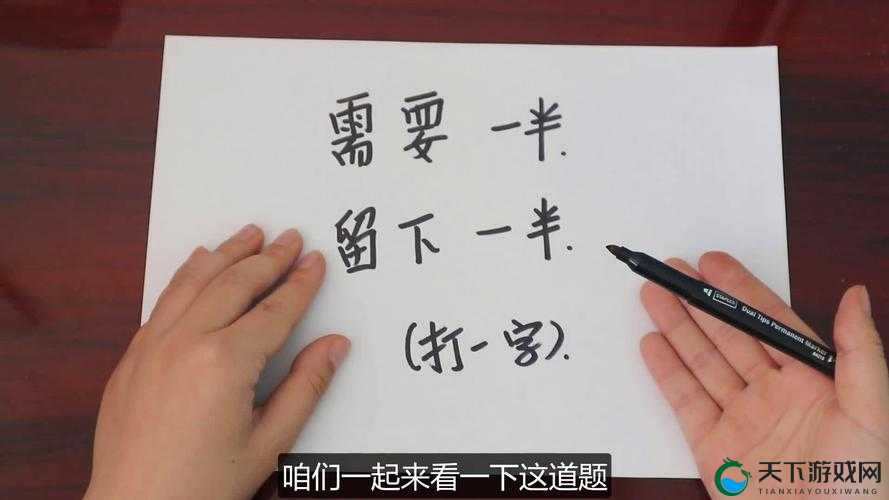 需要一半.
留下一半.
(打一字).
STAEDTLER
Dual Tips Permanent Marker
咱们一起来看一下这道题
天下游戏网
TIANXIAYOUXIWANG